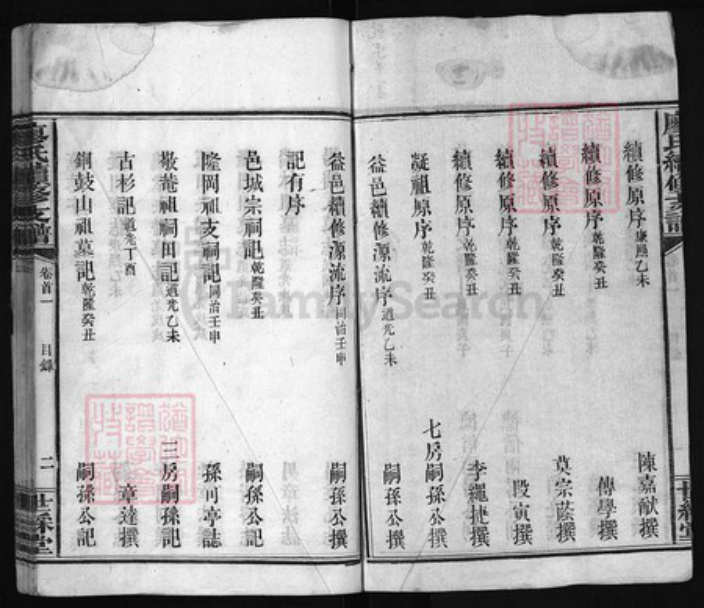 廖氏續修支譜
續修原序康熙乙未 陳嘉猷撰
續修原序乾隆癸丑 傳學撰
續修原序乾隆癸丑 莫宗蔭撰
續修原序乾隆癸丑 段寅撰
續修原序乾隆癸丑 李繩捷撰
凝祖原序乾隆癸丑 七房嗣孫公撰
益邑續修源流序道光乙未 嗣孫公撰
益邑續修源流序同治壬申 嗣孫公撰
記有序
邑城宗祠記乾隆癸丑 嗣孫公記
隆岡祖支祠記同治壬申 孫可亭誌
敬菴祖祠田記道光乙未 三房嗣孫記
古杉記道光丁酉 章達撰
銅鼓山祖墓記乾隆癸丑 嗣孫公記
廖氏續修支譜
卷首一
目錄
二
世綵堂
世綵堂
FamilySearch